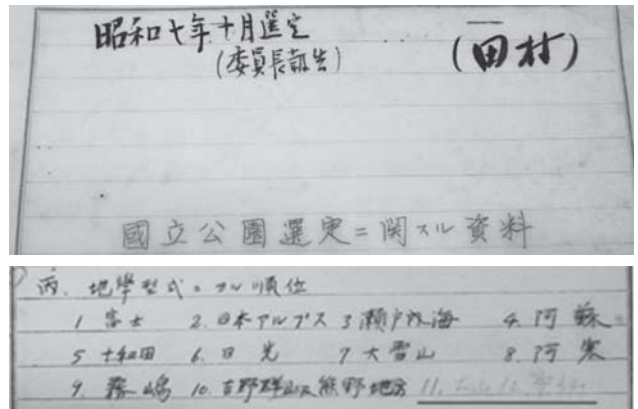 昭和七年十月選定
(委員長報告)
(田村)
國立公園選定ニ関スル資料
丙、地學型式ニヨル順位
1 富士 2. 日本アルプス 3 瀬戸内海 4. 阿蘇
5 十和田 6. 日光 7 大雪山 8. 阿寒
9. 霧嶋 10. 吉野群山及熊野地方 11.